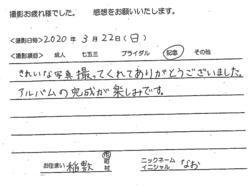 撮影お疲れ様でした。 感想をお願いいたします。
<撮影日時> 2020年 3月 22日(日)
<撮影項目> 成人 七五三 ブライダル 記念 その他
きれいな写真撮ってくれてありがとうございました。
アルバムの完成が楽しみです。
お住まい 稲敷 市 町 村 ニックネーム イニシャル なお